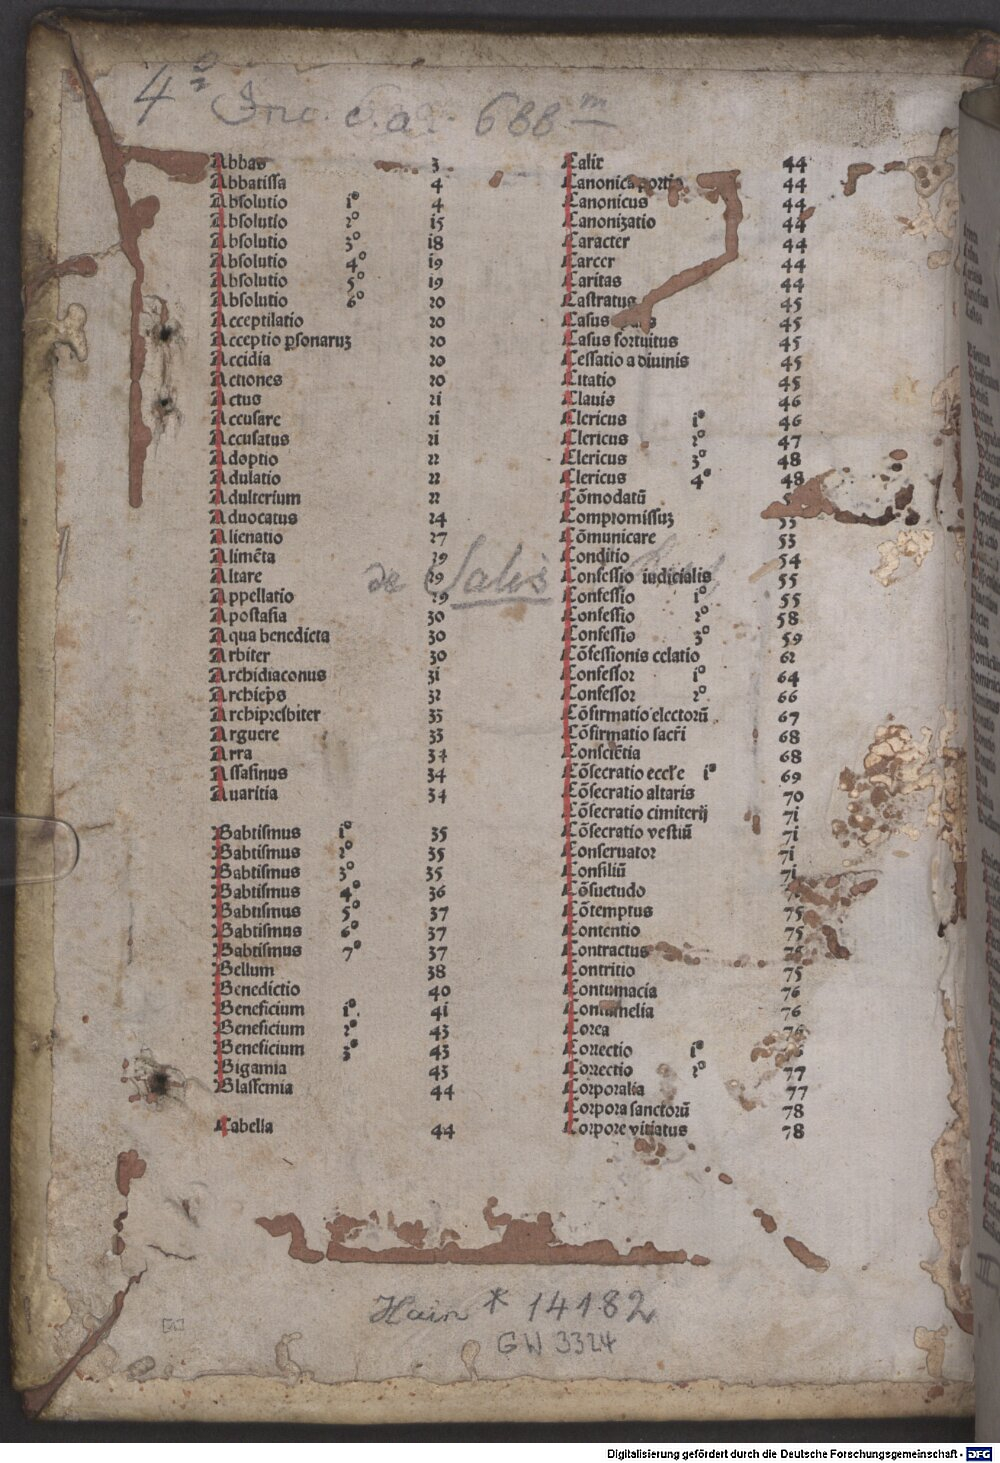 4° Inc. c.a. 688 m
Abbas 3
Abbatissa 4
Absolutio i° 4
Absolutio 2° i5
Absolutio 3° i8
Absolutio 4° i9
Absolutio 5° i9
Absolutio 6° 20
Acceptilatio 20
Acceptio ꝑsonaruꝫ 20
Accidia 20
Actiones 20
Actus 2i
Accusare 2i
Accusatus 2i
Adoptio 22
Adulatio 22
Adulterium 22
Aduocatus 24
Alienatio 27
Alimēta 29
Altare 29
Appellatio 29
Apostasia 30
Aqua benedicta 30
Arbiter 30
Archidiaconus 3i
Archieps 32
Archipresbiter 33
Arguere 33
Arra 34
Assasinus 34
Auaritia 34
Babtismus i° 35
Babtismus 2° 35
Babtismus 3° 35
Babtismus 4° 36
Babtismus 5° 37
Babtismus 6° 37
Babtismus 7° 37
Bellum 38
Benedictio 40
Beneficium i° 4i
Beneficium 2° 43
Beneficium 3° 43
Bigamia 43
Blasfemia 44
Cabella 44
Calix 44
Canonica portio 44
Canonicus 44
Canonizatio 44
Caracter 44
Carcer 44
Caritas 44
Castratus 45
Casus 45
Casus fortuitus 45
Cessatio a diuinis 45
Citatio 45
Clauis 46
Clericus i° 46
Clericus 2° 47
Clericus 3° 48
Clericus 4° 48
Cōmodatū
Compromissuꝫ 53
Cōmunicare 53
Conditio 54
Confessio iudicialis 55
Confessio i° 55
Confessio 2° 58
Confessio 3° 59
Cōfessionis celatio 62
Confessor i° 64
Confessor 2° 66
Cōfirmatio electorū 67
Cōfirmatio sacri 68
Consciētia 68
Cōsecratio eccle i° 69
Cōsecratio altaris 70
Cōsecratio cimiterij 7i
Cōsecratio vestiū 7i
Conseruator 7i
Consiliū 7i
Cōsuetudo
Cōtemptus 75
Contentio 75
Contractus 75
Contritio 75
Contumacia 76
Contumelia 76
Corea 76
Correctio i°
Correctio 2° 77
Corporalia 77
Corpora sanctorū 78
Corpore vitiatus 78
de Salis
Hain * 14182
GW 3324
Digitalisierung gefördert durch die Deutsche Forschungsgemeinschaft - DFG